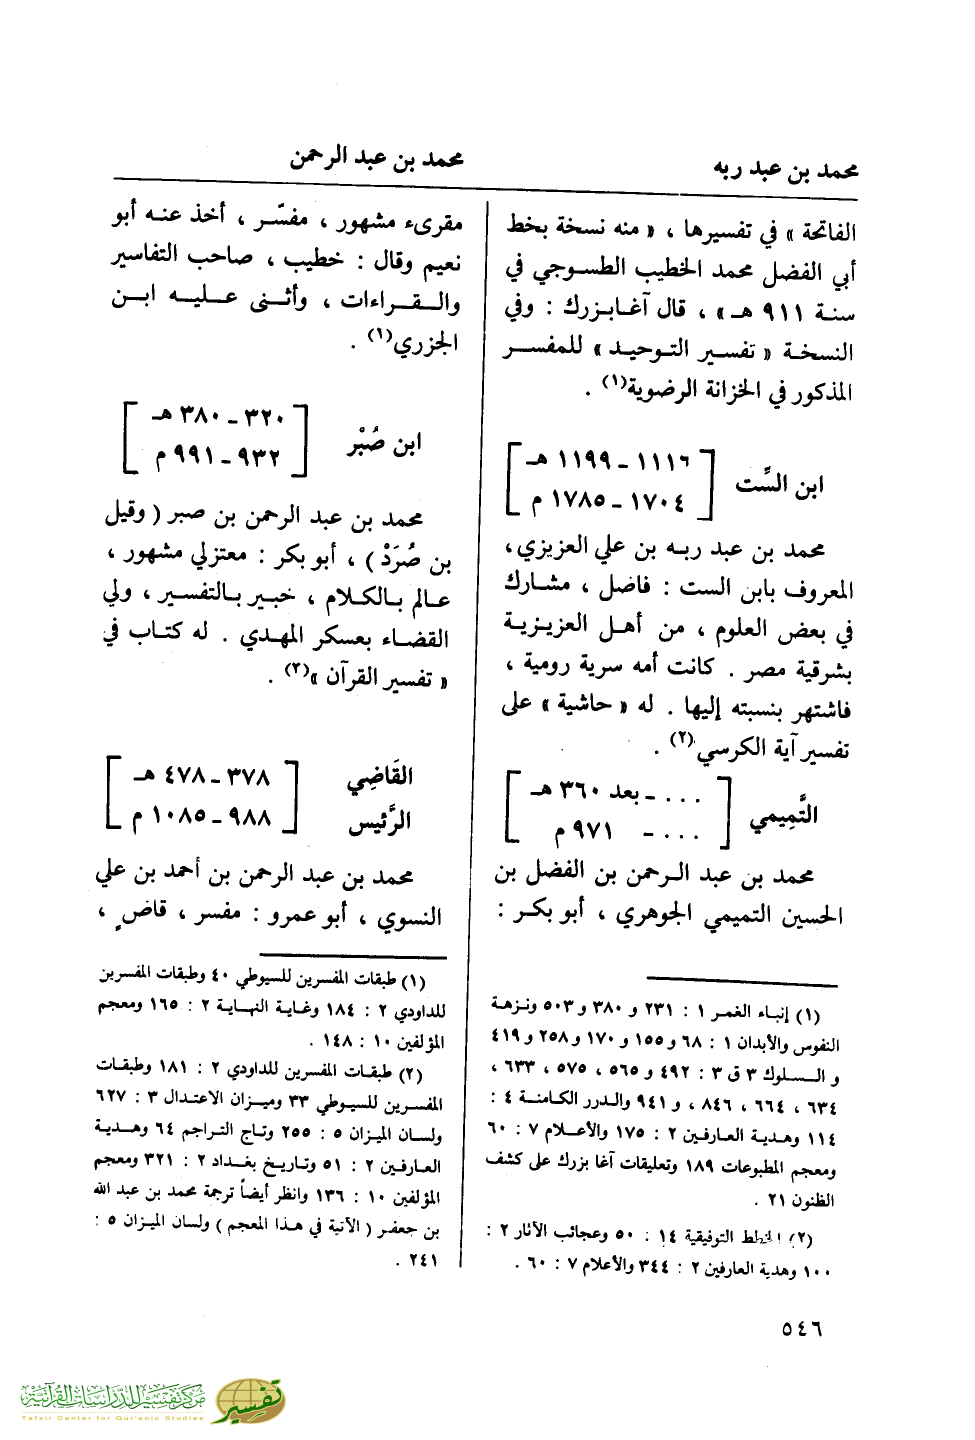 محمد بن عبد ربه
محمد بن عبد الرحمن
الفاتحة » في تفسيرها ، « منه نسخة بخط
أبي الفضل محمد الخطيب الطسوجي في
سنة ٩١١ هـ » ، قال آغابزرك : وفي
النسخة « تفسير التوحيد » للمفسر
المذكور في الخزانة الرضوية(١) .
ابن السِّت
١١١٦ ـ ١١٩٩ هـ
١٧٠٤ ـ ١٧٨٥ م
محمد بن عبد ربه بن علي العزيزي،
المعروف بابن الست : فاضل ، مشارك
في بعض العلوم ، من أهل العزيزية
بشرقية مصر . كانت أمه سرية رومية ،
فاشتهر بنسبته إليها . له « حاشية » على
تفسير آية الكرسي(٢) .
التَّمِيمي
... ـ بعد ٣٦٠ هـ
... ـ ٩٧١ م
محمد بن عبد الرحمن بن الفضل بن
الحسين التميمي الجوهري ، أبو بكر :
(١) إنباء الغمر ١ : ٢٣١ و ٣٨٠ و ٥٠٣ ونزهة
النفوس والأبدان ١ : ٦٨ و ١٥٥ و ١٧٠ و ٢٥٨ و ٤١٩
و السلوك ٣ ق ٣ : ٤٩٢ و ٥٦٥ ، ٥٧٥ ، ٦٣٣ ،
٦٣٤ ، ٦٦٤ ، ٨٤٦ ، و ٩٤١ والدرر الكامنة ٤ :
١١٤ وهدية العارفين ٢ : ١٧٥ والأعلام ٧ : ٦٠
ومعجم المطبوعات ١٨٩ وتعليقات آغا بزرك على كشف
الظنون ٢١ .
(٢) الخطط التوفيقية ١٤ : ٥٠ وعجائب الآثار ٢ :
١٠٠ وهدية العارفين ٢ : ٣٤٤ والأعلام ٧ : ٦٠ .
مقرىء مشهور ، مفسّر ، أخذ عنه أبو
نعيم وقال : خطيب ، صاحب التفاسير
والقراءات ، وأثنى عليه ابن
الجزري(١) .
ابن صُبْر
٣٢٠ ـ ٣٨٠ هـ
٩٣٢ ـ ٩٩١ م
محمد بن عبد الرحمن بن صبر ( وقيل
بن صُرَدْ ) ، أبو بكر : معتزلي مشهور ،
عالم بالكلام ، خبير بالتفسير ، ولي
القضاء بعسكر المهدي . له كتاب في
« تفسير القرآن »(٢) .
القَاضِي
الرَّئيس
٣٧٨ ـ ٤٧٨ هـ
٩٨٨ ـ ١٠٨٥ م
محمد بن عبد الرحمن بن أحمد بن علي
النسوي ، أبو عمرو : مفسر ، قاضٍ ،
(١) طبقات المفسرين للسيوطي ٤٠ وطبقات المفسرين
للداودي ٢ : ١٨٤ وغاية النهاية ٢ : ١٦٥ ومعجم
المؤلفين ١٠ : ١٤٨ .
(٢) طبقات المفسرين للداودي ٢ : ١٨١ وطبقات
المفسرين للسيوطي ٣٣ وميزان الاعتدال ٣ : ٦٢٧
ولسان الميزان ٥ : ٢٥٥ وتاج التراجم ٦٤ وهدية
العارفين ٢ : ٥١ وتاريخ بغداد ٢ : ٣٢١ ومعجم
المؤلفين ١٠ : ١٣٦ وانظر أيضاً ترجمة محمد بن عبد الله
بن جعفر ( الآتية في هذا المعجم ) ولسان الميزان ٥ :
٢٤١ .
٥٤٦
مركز تفسير للدراسات القرآنية
Tafsir Center for Qur'anic Studies
تفسير